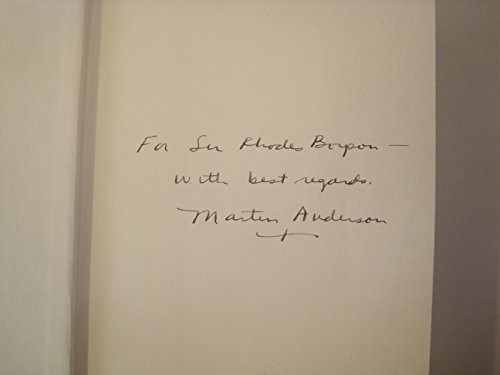 For Sir Rhodes Boyson —
With best regards.
Martin Anderson